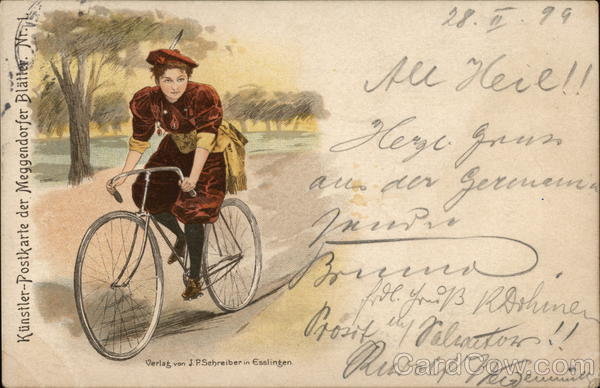 Künstler-Postkarte der Meggendorfer Blätter. Nr. 1.
28. II. 99
All Heil!!
Herzl. Gruss
aus der Germania
sendet
Bruno
frdl. Gruß R. Dohmen
Prosit Salvator!!
Verlag von J.F.Schreiber in Esslingen.
CardCow.com